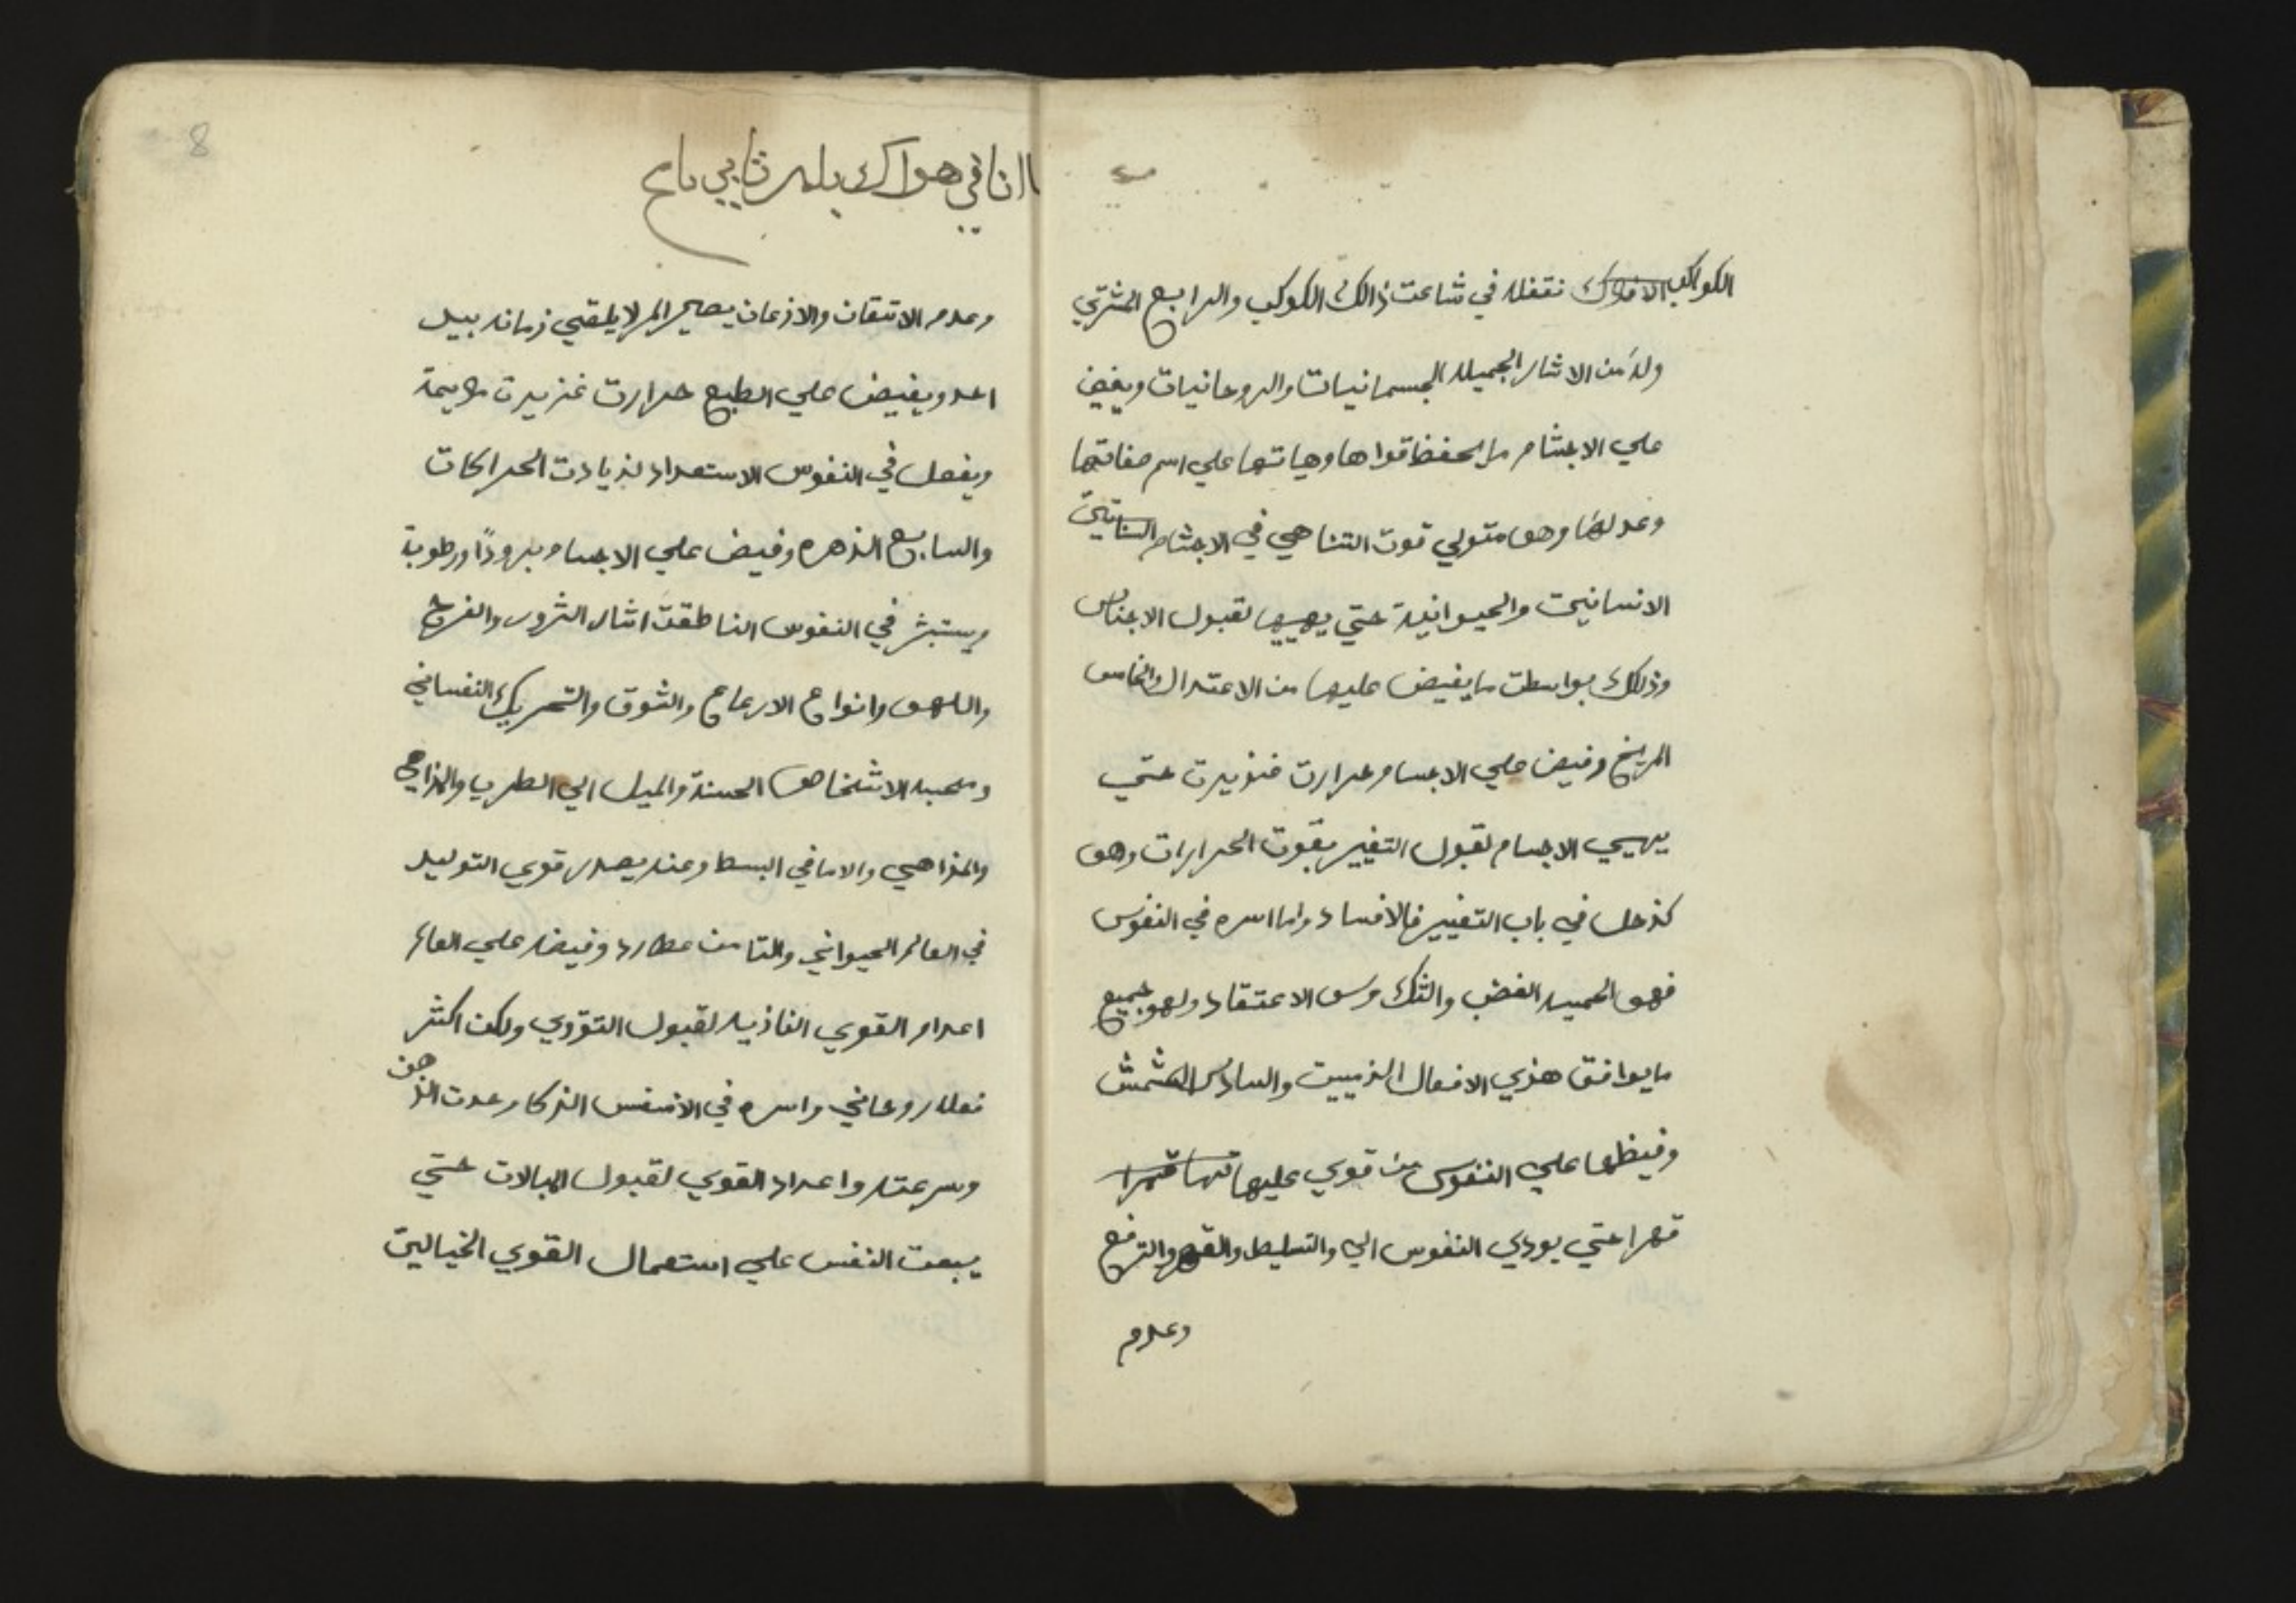 الكواكب الافلاك نقفله في شاعت ذالك الكوكب والرابع المشتري
وله من الاثار الجميله الجسمانيات والروحانيات ويفيض
علي الاجشام ما يحفظ قواها وهياتها علي اسم صفاتها
وعدلها وهو متولي قوت التناهي في الاجشام النباتية
الانسانيت والحيوانية حتي يهييها لقبول الاجناس
وذلك بواسطت ما يفيض عليها من الاعتدال والخامس
المريخ وفيض علي الاجسام حرارت غزيرت حتي
يهيي الاجسام لقبول التغيير بقوت الحرارات وهو
كزحل في باب التغيير فالافساد واما اسره في النفوس
فهو الحميه الغضب والشك وسو الاعتقاد ولهو جميع
ما يوافق هذي الافعال الذميت والسادس الشمش
وفيظها علي النفوس من قوي عليها
قهرا حتي يودي النفوس الي والتسليط والقهر والترفع
وعدم
انا في هواك يلمر ثابي
8
وعدم الاتقان والاذعان يصير المر لا يلقي زمانه بيد
احد ويفيض علي الطبع حرارت غزيرت
ويفعل في النفوس الاستعداد لزيادت الحراكات
والسابع الزهره وفيض علي الاجسام برودًا ورطوبة
ويستبشر في النفوس الناطقت اثار الشرور والفرح
واللهو وانواع الارعاع والشوق والتحريك النفساني
ومحبه الاشخاص الحسنة والميل الي الطرب والمزاحي
والمزاهي والاماني البسط وعنه يصدر قوي التوليد
في العالم الحيواني والتامن عطارد وفيضه علي العالم
اعدام القوي الغاذيه لقبول التؤدي ولكن اكثر
فعله روحاني واسره في الانسفس الذكا وحدت الذهن
وسرعته واعداد القوي لقبول المبالات حتي
يبعت النفس علي استعمال القوي الخياليت